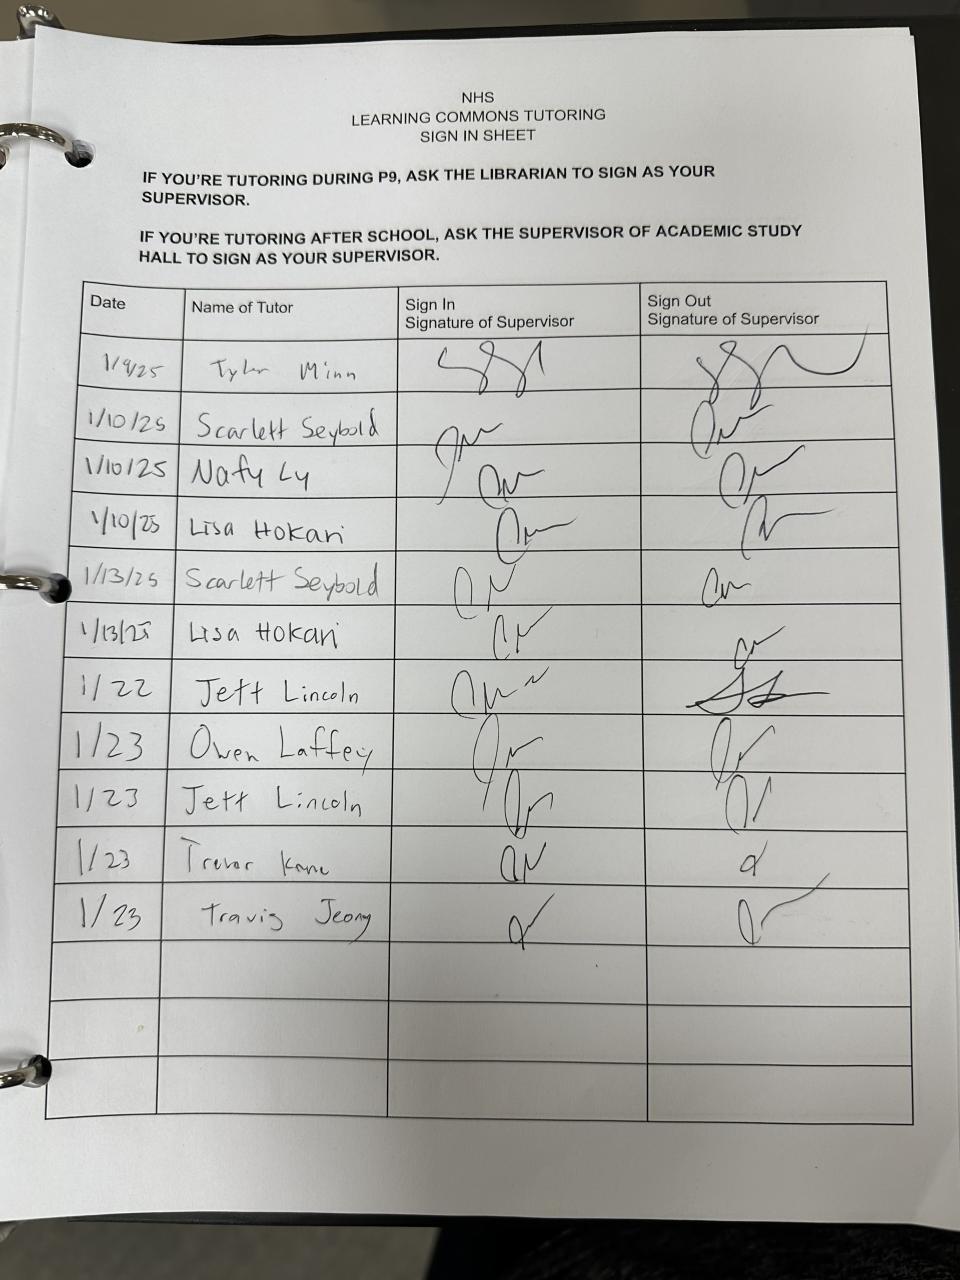 NHS
LEARNING COMMONS TUTORING
SIGN IN SHEET
IF YOU'RE TUTORING DURING P9, ASK THE LIBRARIAN TO SIGN AS YOUR
SUPERVISOR.
IF YOU'RE TUTORING AFTER SCHOOL, ASK THE SUPERVISOR OF ACADEMIC STUDY
HALL TO SIGN AS YOUR SUPERVISOR.
Date Name of Tutor Sign In Signature of Supervisor Sign Out Signature of Supervisor
1/9/25 Tyler Minn
1/10/25 Scarlett Seybold
1/10/25 Nafy Ly
1/10/25 Lisa Hokari
1/13/25 Scarlett Seybold
1/13/25 Lisa Hokari
1/22 Jett Lincoln
1/23 Owen Laffey
1/23 Jett Lincoln
1/23 Trevor Kane
1/23 Travis Jeong